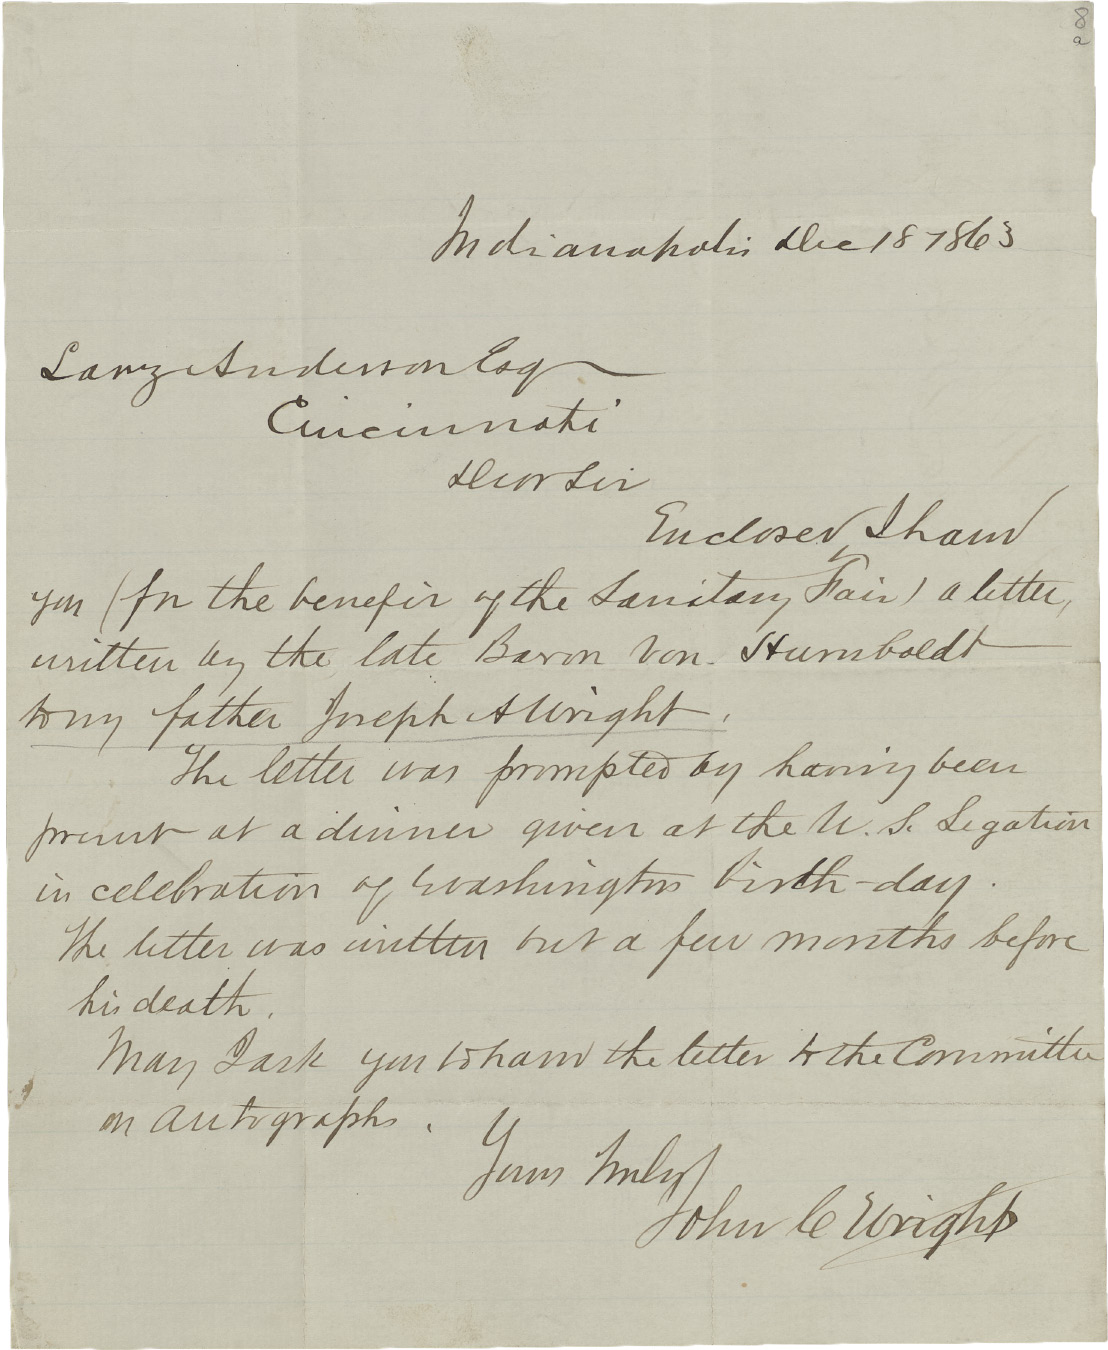 Indianapolis Dec 18 1863
Larz Anderson Esq
Cincinnati
Dear Sir
Enclosed, I hand
you (for the benefit of the Sanitary Fair) a letter,
written by the late Baron Von. Humboldt
to my father Joseph A Wright.
The letter was prompted by having been
present at a dinner given at the U. S. Legation
in celebration of Washingtons birth-day.
The letter was written but a few months before
his death.
May I ask you to hand the letter to the Committee
on autographs.
Yours truly
John C Wright